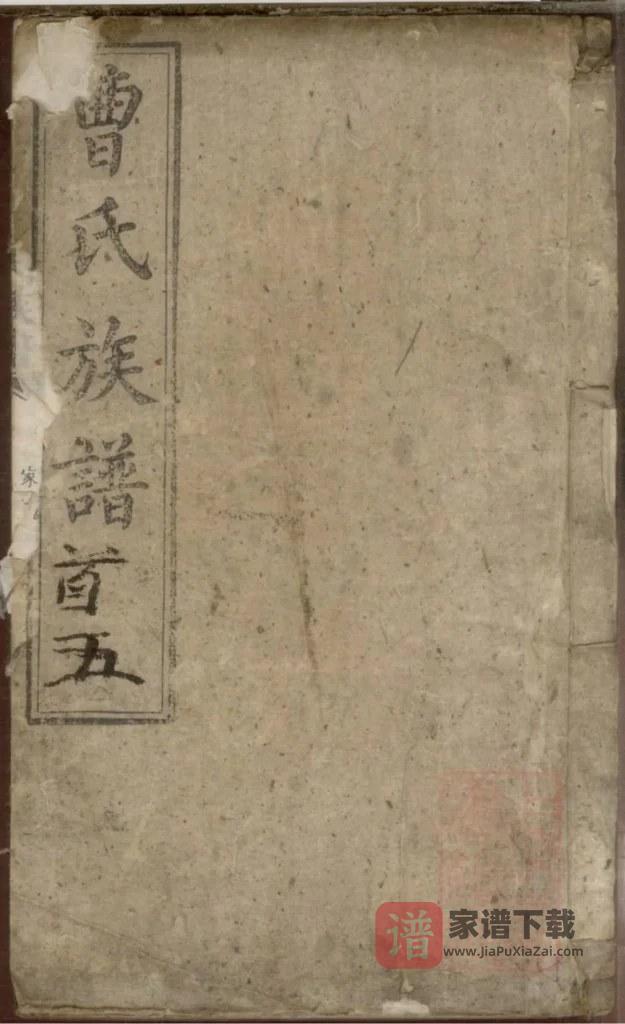 曹氏族譜首五
家
谱
家谱下载
www.JiaPuXiaZai.com